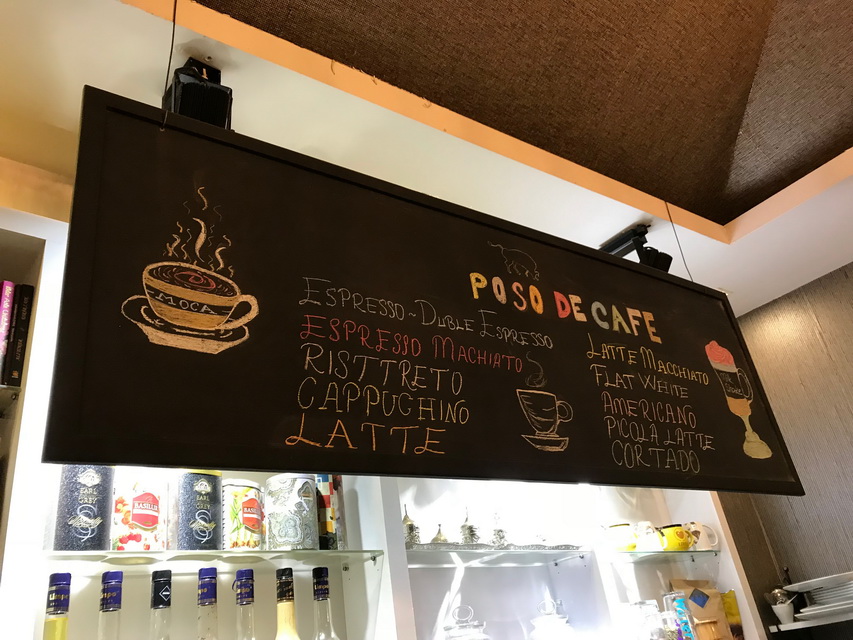 POSO DE CAFE
MOCA
ESPRESSO ~ DUBLE ESPRESSO
ESPRESSO MACHIATO
RISTTRETO
CAPPUCHINO
LATTE
LATTE MACCHIATO
FLAT WHITE
AMERICANO
PICOLA LATTE
CORTADO
EARL
GREY
BASILUR
EARL
GREY
BASILUR